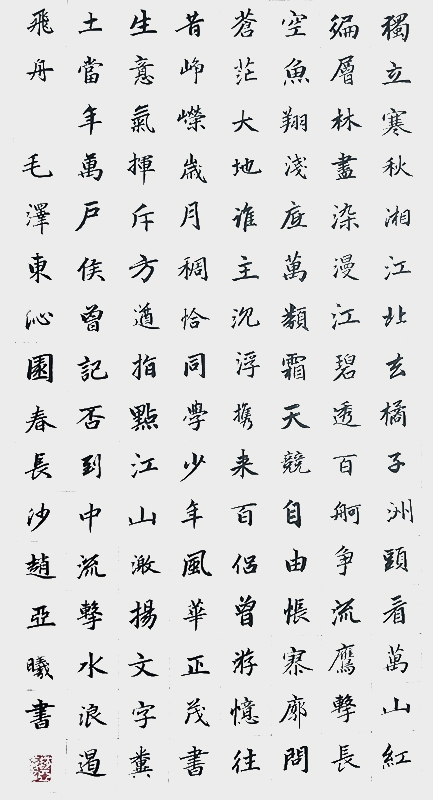 獨立寒秋湘江北去橘子洲頭看萬山紅
徧層林盡染漫江碧透百舸争流鷹擊長
空魚翔淺底萬類霜天競自由悵寥廓問
蒼茫大地誰主沉浮携来百侣曾游憶往
昔崢嶸歲月稠恰同學少年風華正茂書
生意氣揮斥方遒指點江山激揚文字糞
土當年萬戶侯曾記否到中流擊水浪遏
飛舟 毛澤東沁園春長沙趙亞曦書